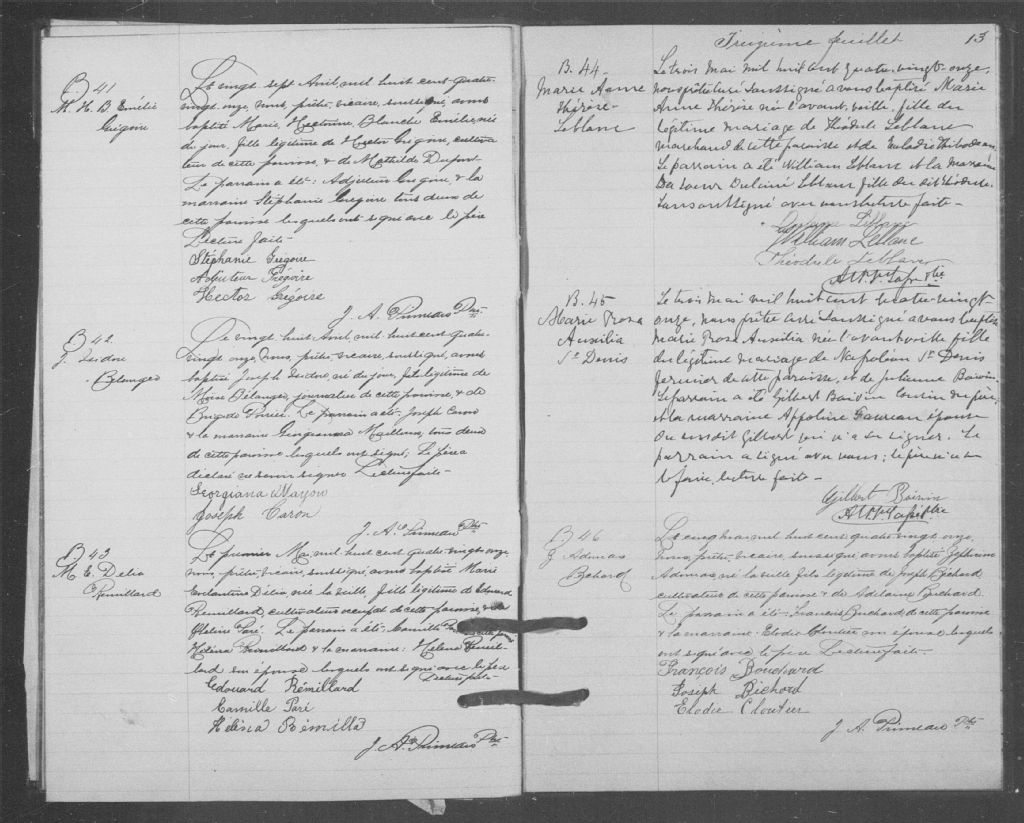 B. 41
M. H. B. Emélie
Grégoire
Le vingt sept Avril, mil huit cent quatre-
vingt onze, nous, prêtre, vicaire, soussigné, avons
baptisé Marie, Hectorine, Blanche Emélie, née
du jour, fille légitime de Hector Grégoire, cultiva-
teur de cette paroisse, & de Mathilde Dupont
Le parrain a été: Adjuteur Grégoire, & la
marraine Stéphanie Grégoire tous deux de
cette paroisse lesquels ont signé avec le père
Lecture faite-
Stéphanie Grégoire
Adjuteur Grégoire
Hector Grégoire
J. A. Primeau Ptre
B. 42
J. Isidore
Bélanger
Le vingt huit Avril, mil huit cent quatre-
vingt onze, nous, prêtre, vicaire, soussigné, avons
baptisé Joseph Isidore, né du jour, fils légitime de
Moïse Bélanger, journalier de cette paroisse, & de
Brigide Poirier. Le parrain a été Joseph Caron
& la marraine Georgianna Mailloux, tous deux
de cette paroisse lesquels ont signé; Le père a
déclaré ne savoir signer Lecture faite-
Georgiana Mayou
Joseph Caron
J. A. Primeau Ptre
B. 43
M. E. Délia
Rémillard
Le premier Mai, mil huit cent quatre-vingt onze,
nous, prêtre, vicaire, soussigné, avons baptisé Marie
Délia, née la veille, fille légitime de Edouard
Rémillard, cultivateur de cette paroisse, & de
Paré. Le parrain a été: Camille Paré de cette
Héléna Rémillard & la marraine: Héléna Rémil-
lard son épouse lesquels ont signé avec le père
Lecture faite-
Edouard Rémillard
Camille Paré
Héléna Rémilla
J. A. Primeau Ptre
Treizième feuillet
13
B. 44-
Marie Anne
Thérèse-
Leblanc
Le trois mai mil huit cent quatre-vingt-onze,
nous prêtre curé soussigné avons baptisé Marie
Anne Thérèse née l'avant-veille, fille du
légitime mariage de Théodule Leblanc
marchand de cette paroisse et de Eulalie Thibodeau.
Le parrain a été William Leblanc et la marraine
Leblanc fille du dit Théodule.
Lesquels ont signé avec nous lecture faite-
Leblanc
William Leblanc
Théodule Leblanc
B. 45
Marie Rosa
Auxilia
St Denis
Le trois mai mil huit cent quatre-vingt-
onze, nous prêtre curé soussigné avons baptisé
Marie Rosa Auxilia née l'avant veille fille
du légitime mariage de Napoléon St Denis
fermier de cette paroisse, et de Julienne Boivin.
Le parrain a été Gilbert Boivin cousin du père,
et la marraine Appoline épouse
du susdit Gilbert qui n'a su signer. Le
parrain a signé avec nous; le père n'a su
le faire, lecture faite-
Gilbert Boivin
B 46
J. Adonias
Bichard
Le cinq mai mil huit cent quatre vingt onze,
nous, prêtre, vicaire, soussigné, avons baptisé Joseph
Adonias, né la veille fils légitime de Joseph Bichard
cultivateur de cette paroisse & de Adélaïne Bouchard
Le parrain a été: François Bouchard, de cette paroisse
& la marraine: Elodie Cloutier son épouse lesquels
ont signé avec le père Lecture faite-
François Bouchard
Joseph Bichard
Elodie Cloutier
J. A. Primeau Ptre